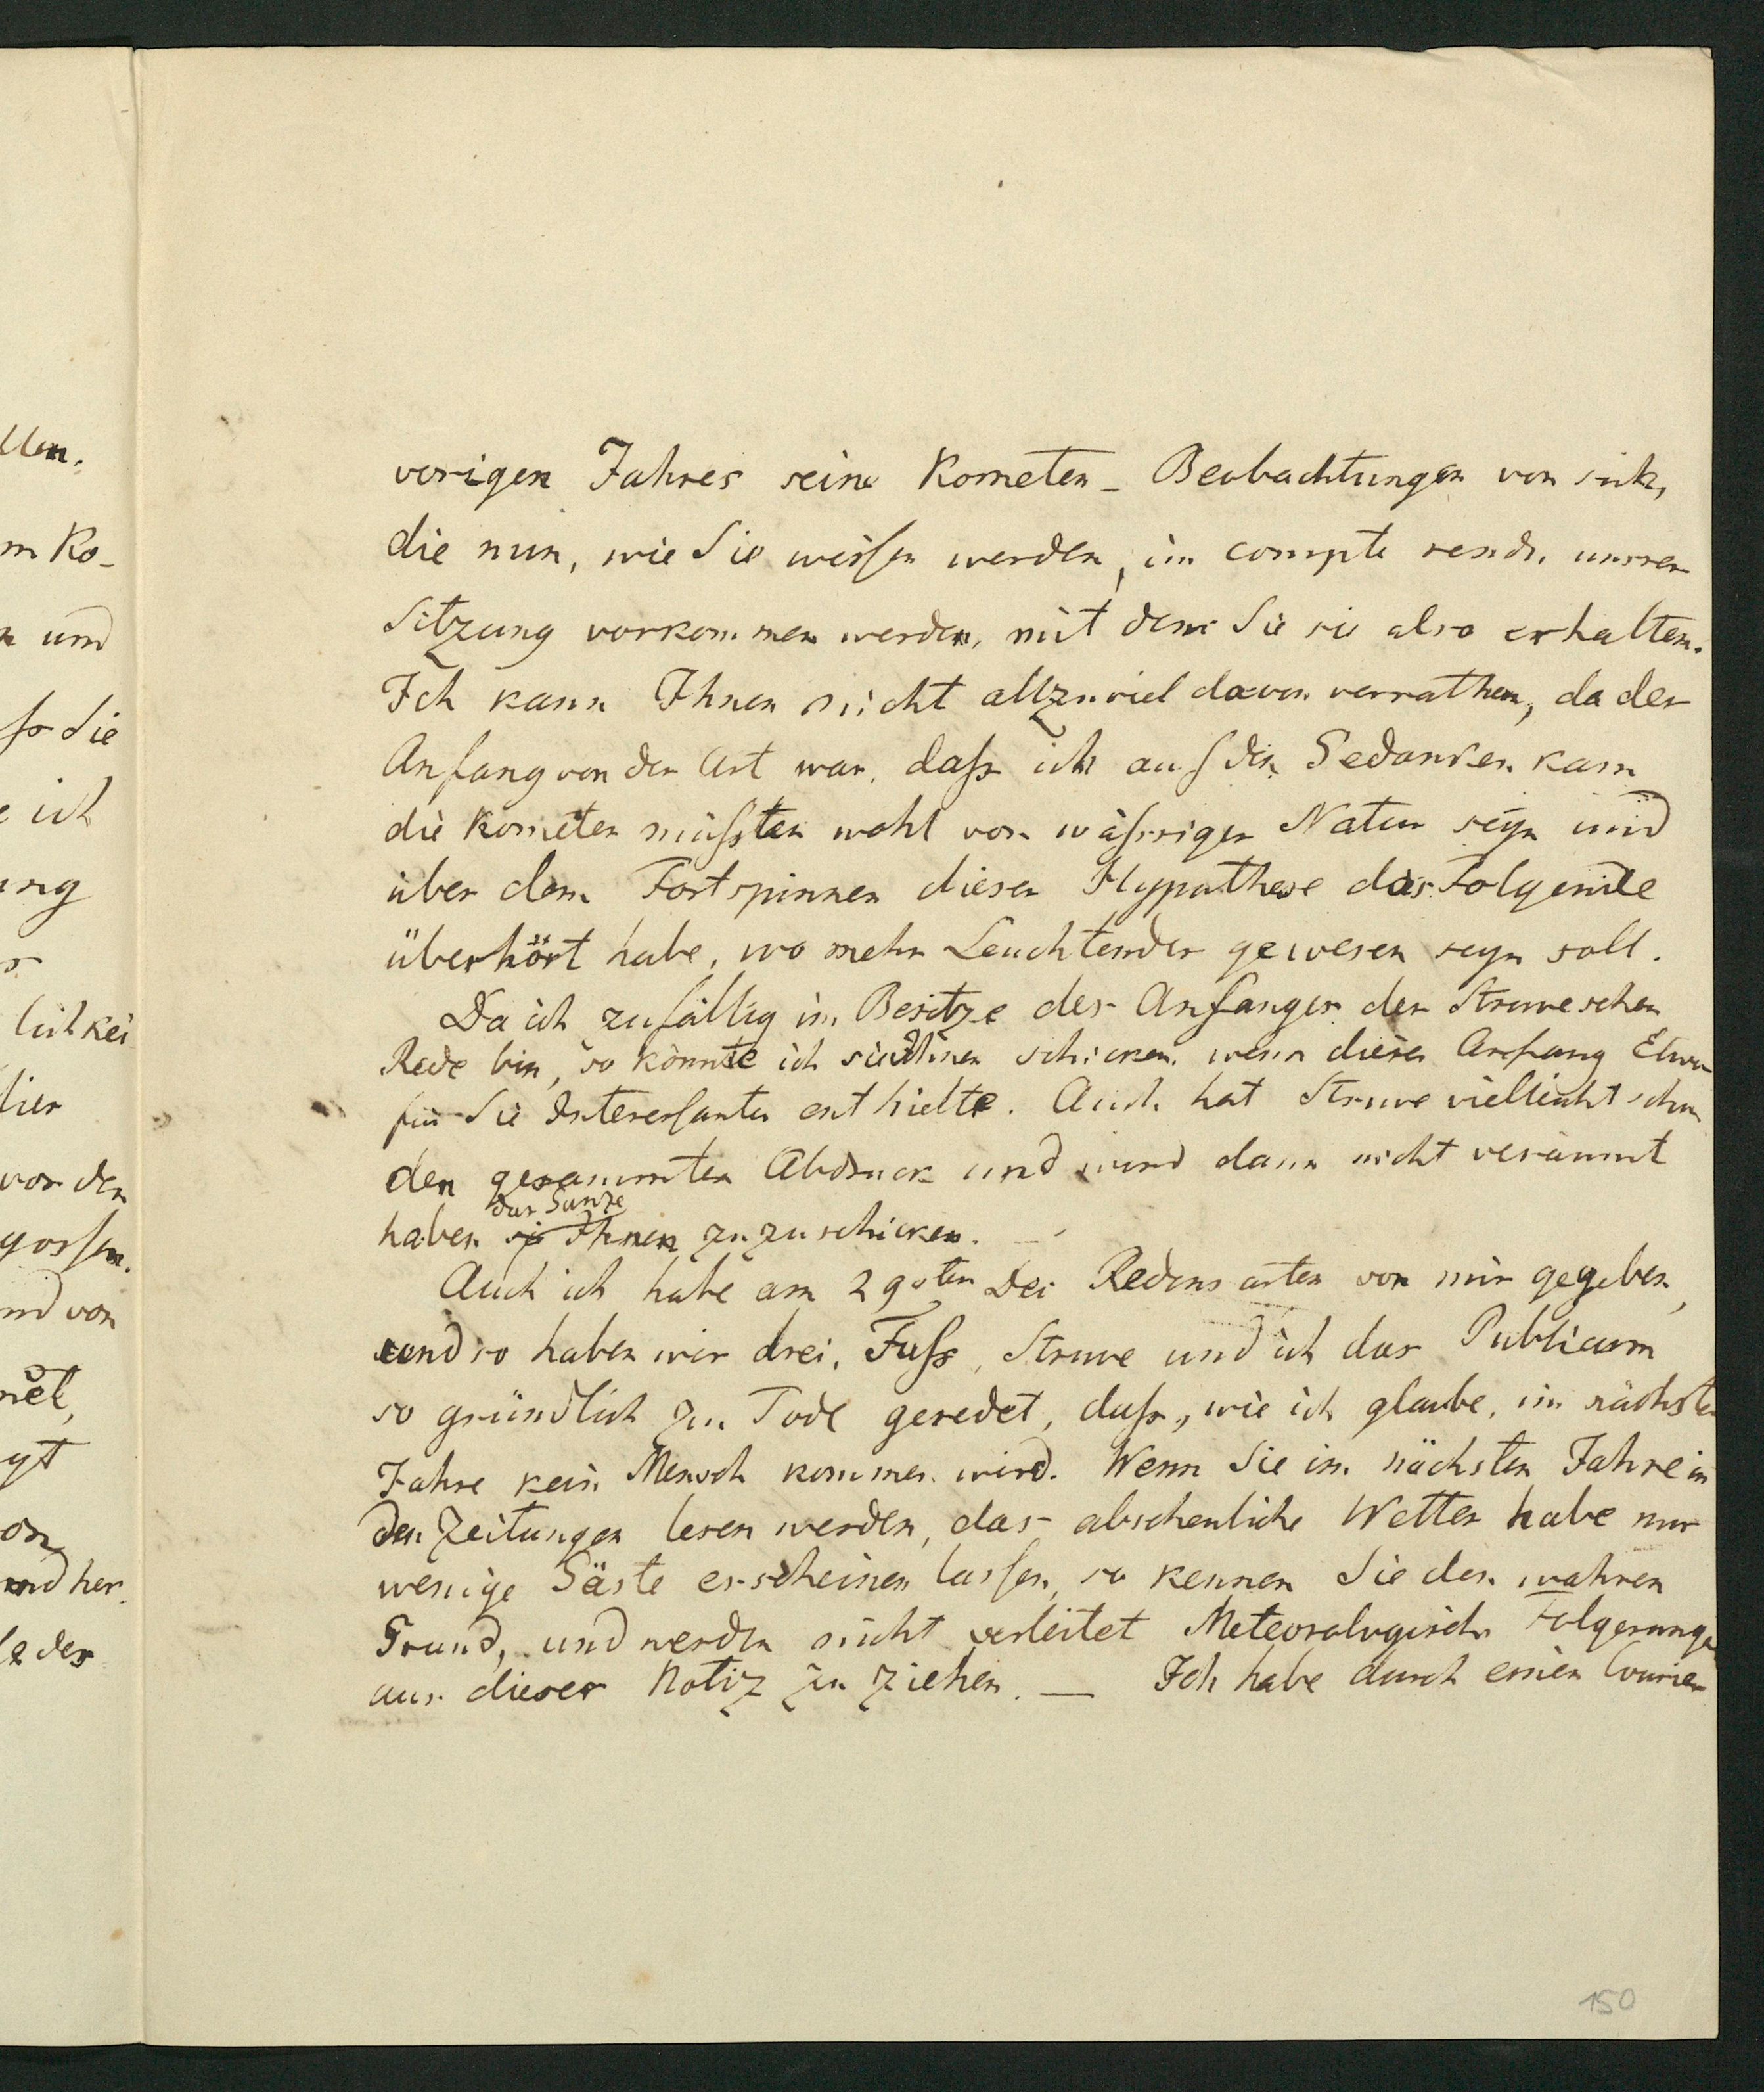 llen.
m Ko-
n und
ss Sie
e ich
ung
lichkei
lier
vor den
gossen.
und von
net,
gt
on
und her.
le des
vorigen Jahres seine Kometen-Beobachtungen von sich,
die nun, wie Sie wissen werden, im compte rendu unsrer
Sitzung vorkommen werden, mit dem Sie sie also erhalten.
Ich kann Ihnen nicht allzuviel davon verrathen, da der
Anfang von der Art war, dass ich auf den Gedanken kam
die Kometen müssten wohl von wässriger Natur seyn und
über dem Fortspinnen dieser Hypothese das Folgende
überhört habe, wo mehr Leuchtendes gewesen seyn soll.
Da ich zufällig im Besitze des Anfanges der Struveschen
Rede bin, so könnte ich sie Ihnen schicken, wenn dieser Anfang Etwas
für Sie Interessantes enthielte. Auch hat Struve vielleicht schon
den gesammten Abdruck und wird dann nicht versäumt
das Ganze
haben sie Ihnen zuzuschicken. —
Auch ich habe am 29sten Dec Redensarten von mir gegeben,
und so haben wir drei, Fuss, Struve und ich das Publicum
so gründlich zu Tode geredet, dass, wie ich glaube, im nächsten
Jahre kein Mensch kommen wird. Wenn Sie im nächsten Jahre in
den Zeitungen lesen werden, das abscheuliche Wetter habe nur
wenige Gäste erscheinen lassen, so kennen Sie den wahren
Grund, und werden nicht verleitet Meteorologische Folgerungen
aus dieser Notiz zu ziehen. — Ich habe durch einen Courier
150